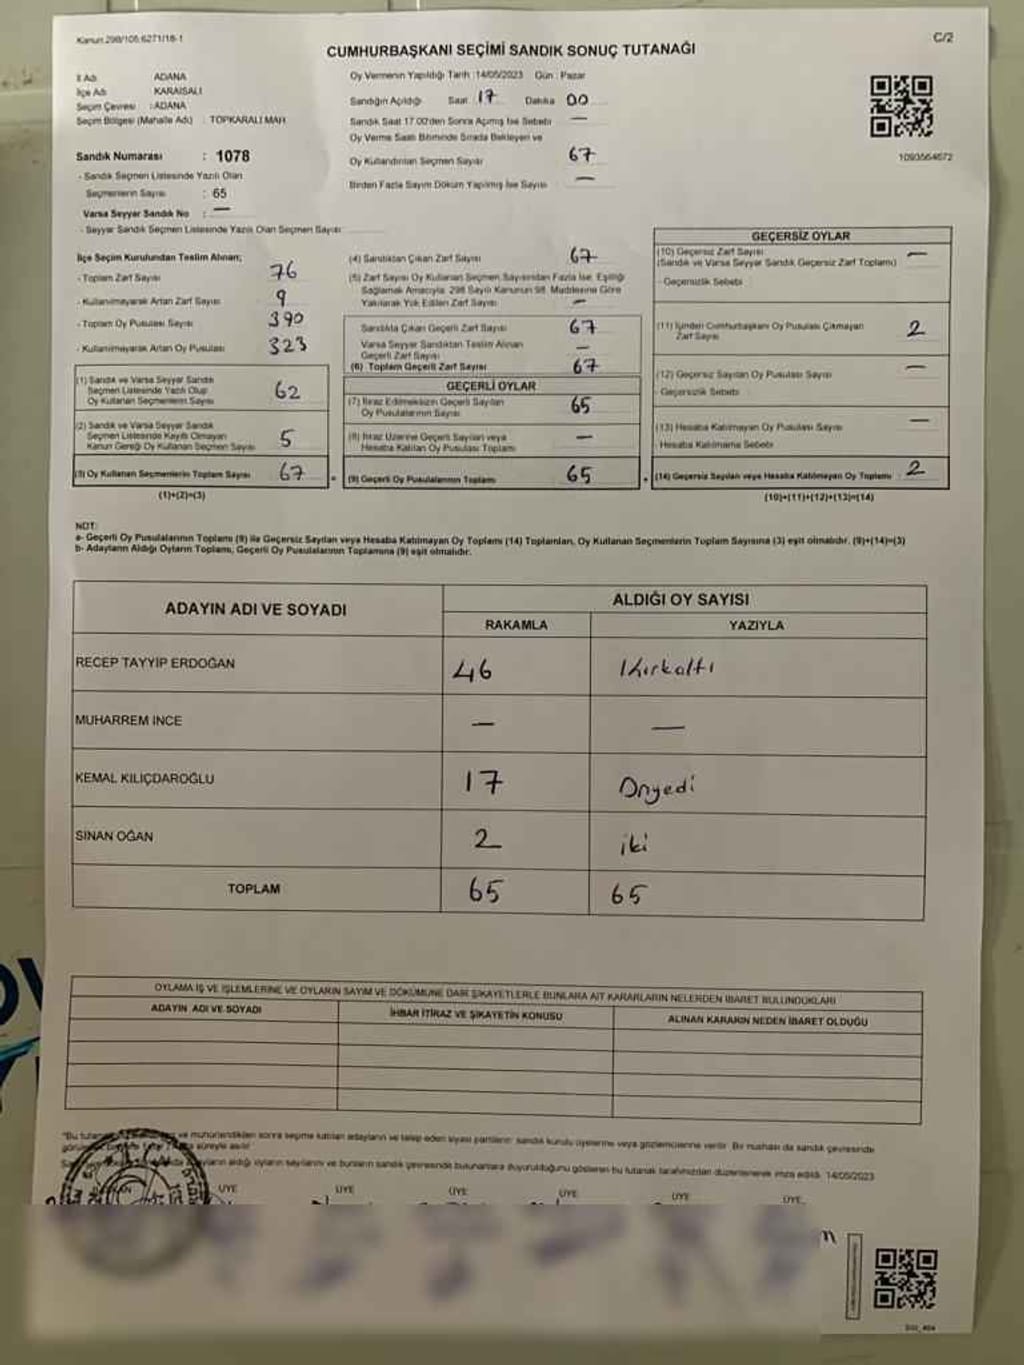 Kanun:298/106:6271/18-1
C/2
CUMHURBAŞKANI SEÇİMİ SANDIK SONUÇ TUTANAĞI
İl Adı ADANA
İlçe Adı KARAISALI
Seçim Çevresi : ADANA
Seçim Bölgesi (Mahalle Adı) : TOPKARALI MAH
Sandık Numarası : 1078
- Sandık Seçmen Listesinde Yazılı Olan
Seçmenlerin Sayısı : 65
Varsa Seyyar Sandık No : —
- Seyyar Sandık Seçmen Listesinde Yazılı Olan Seçmen Sayısı
Oy Vermenin Yapıldığı Tarih : 14/05/2023 Gün : Pazar
Sandığın Açıldığı Saat 17 Dakika 00
Sandık Saat 17:00'den Sonra Açılmış İse Sebebi —
Oy Verme Saati Bitiminde Sırada Bekleyen ve
Oy Kullandırılan Seçmen Sayısı 67
Birden Fazla Sayım Döküm Yapılmış İse Sayısı —
1093564672
İlçe Seçim Kurulundan Teslim Alınan;
- Toplam Zarf Sayısı 76
- Kullanılmayarak Artan Zarf Sayısı 9
- Toplam Oy Pusulası Sayısı 390
- Kullanılmayarak Artan Oy Pusulası 323
(1) Sandık ve Varsa Seyyar Sandık
Seçmen Listesinde Yazılı Olup
Oy Kullanan Seçmenlerin Sayısı 62
(2) Sandık ve Varsa Seyyar Sandık
Seçmen Listesinde Kayıtlı Olmayan
Kanun Gereği Oy Kullanan Seçmen Sayısı 5
(3) Oy Kullanan Seçmenlerin Toplam Sayısı 67
(1)+(2)=(3)
(4) Sandıktan Çıkan Zarf Sayısı 67
(5) Zarf Sayısı Oy Kullanan Seçmen Sayısından Fazla İse, Eşitliği
Sağlamak Amacıyla, 298 Sayılı Kanunun 98. Maddesine Göre
Yakılarak Yok Edilen Zarf Sayısı —
Sandıkta Çıkan Geçerli Zarf Sayısı 67
Varsa Seyyar Sandıktan Teslim Alınan
Geçerli Zarf Sayısı —
(6) Toplam Geçerli Zarf Sayısı 67
GEÇERLİ OYLAR
(7) İtiraz Edilmeksizin Geçerli Sayılan
Oy Pusulalarının Sayısı 65
(8) İtiraz Üzerine Geçerli Sayılan veya
Hesaba Katılan Oy Pusulası Toplamı —
= (9) Geçerli Oy Pusulalarının Toplamı 65
GEÇERSİZ OYLAR
(10) Geçersiz Zarf Sayısı —
(Sandık ve Varsa Seyyar Sandık Geçersiz Zarf Toplamı)
- Geçersizlik Sebebi
(11) İçinden Cumhurbaşkanı Oy Pusulası Çıkmayan
Zarf Sayısı 2
(12) Geçersiz Sayılan Oy Pusulası Sayısı —
- Geçersizlik Sebebi
(13) Hesaba Katılmayan Oy Pusulası Sayısı —
- Hesaba Katılmama Sebebi
+ (14) Geçersiz Sayılan veya Hesaba Katılmayan Oy Toplamı 2
(10)+(11)+(12)+(13)=(14)
NOT:
a- Geçerli Oy Pusulalarının Toplamı (9) ile Geçersiz Sayılan veya Hesaba Katılmayan Oy Toplamı (14) Toplamları, Oy Kullanan Seçmenlerin Toplam Sayısına (3) eşit olmalıdır. (9)+(14)=(3)
b- Adayların Aldığı Oyların Toplamı, Geçerli Oy Pusulalarının Toplamına (9) eşit olmalıdır.
ADAYIN ADI VE SOYADI
ALDIĞI OY SAYISI
RAKAMLA YAZIYLA
RECEP TAYYİP ERDOĞAN 46 Kırkaltı
MUHARREM İNCE — —
KEMAL KILIÇDAROĞLU 17 Onyedi
SİNAN OĞAN 2 iki
TOPLAM 65 65
OYLAMA İŞ VE İŞLEMLERİNE VE OYLARIN SAYIM VE DÖKÜMÜNE DAİR ŞİKAYETLERLE BUNLARA AİT KARARLARIN NELERDEN İBARET BULUNDUKLARI
ADAYIN ADI VE SOYADI İHBAR İTİRAZ VE ŞİKAYETİN KONUSU ALINAN KARARIN NEDEN İBARET OLDUĞU
"Bu tutanak ve mühürlendikten sonra seçime katılan adayların ve talep eden siyasi partilerin sandık kurulu üyelerine veya gözlemcilerine verilir. Bir nushası da sandık çevresinde
süreyle asılır
aldığı oyların sayılarını ve bunların sandık çevresinde bulunanlara duyurulduğunu gösteren bu tutanak tarafımızdan düzenlenerek imza edildi. 14/05/2023
ÜYE ÜYE ÜYE ÜYE ÜYE ÜYE